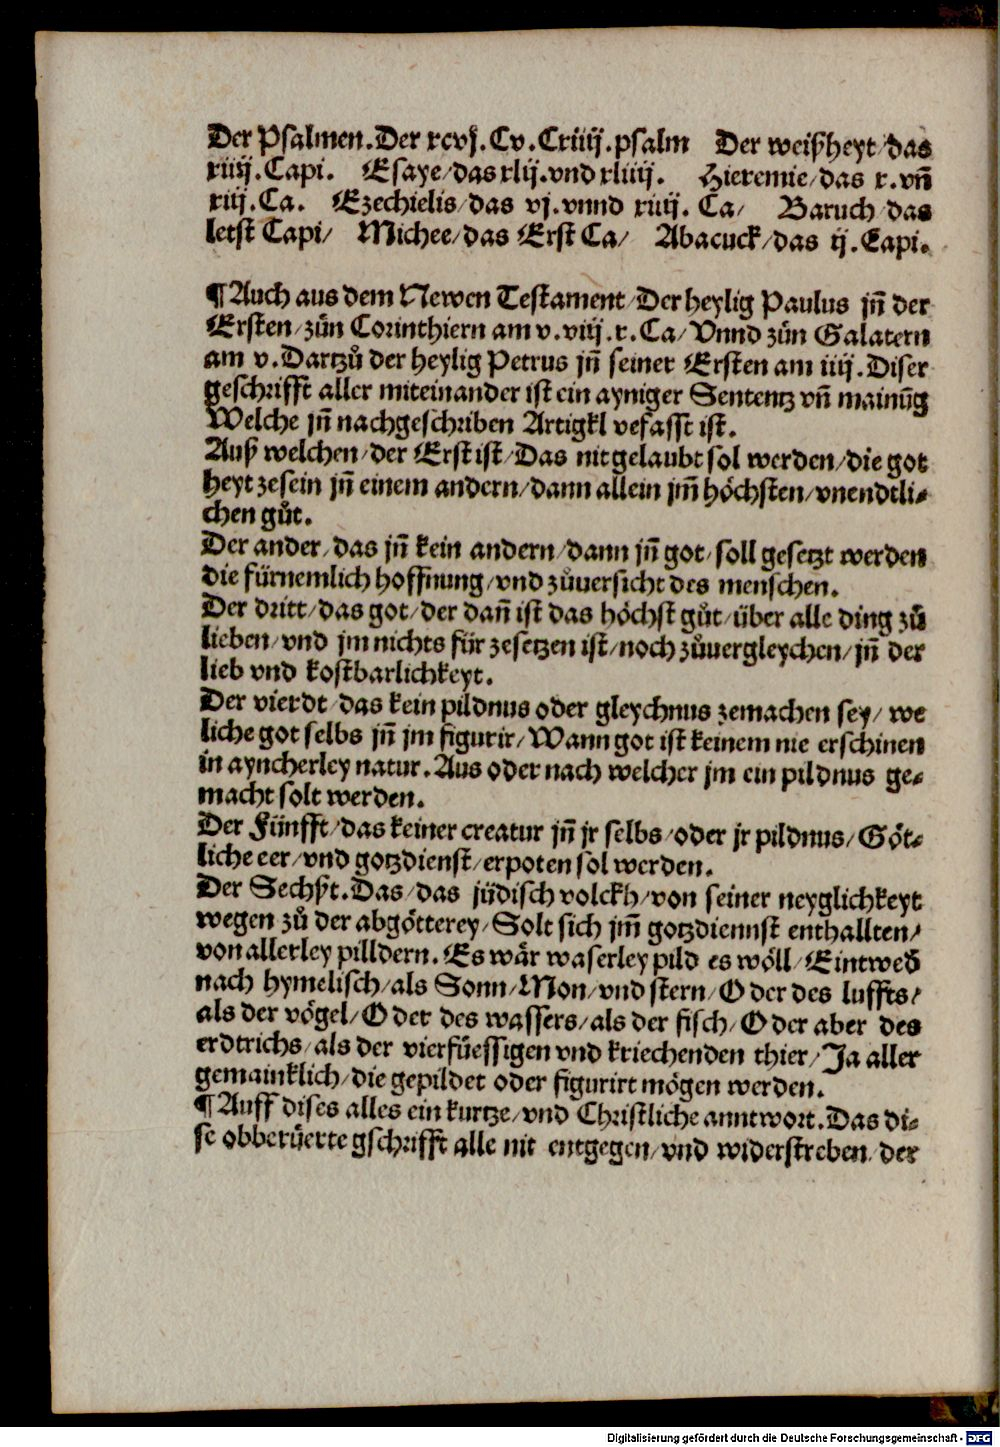 Der Psalmen. Der xcvj. Cv. Cxiiij. psalm Der weißheyt/das
xiiij. Capi. Esaye/das xlij. vnd xliiij. Hieremie/das x. vñ
xiij. Ca. Ezechielis/das vj. vnnd xiiij. Ca/ Baruch/das
letst Capi/ Michee/das Erst Ca/ Abacuck/das ij. Capi.
¶ Auch aus dem Newen Testament/Der heylig Paulus jñ der
Ersten/zůn Corinthiern am v. viij. x. Ca/Vnnd zůn Galatern
am v. Dartzů der heylig Petrus jñ seiner Ersten am iiij. Diser
geschrifft aller miteinander ist ein ayniger Sententz vñ mainũg
Welche jñ nachgeschriben Artigkl vefasst ist.
Auß welchen/der Erst ist/Das nit gelaubt sol werden/die got
heyt zesein jñ einem andern/dann allein jm̃ höchsten/vnendtli-
chen gůt.
Der ander/das jñ kein andern/dann jñ got/soll gesetzt werden
die fürnemlich hoffnung/vnd zůuersicht des menschen.
Der dritt/das got/der dañ ist das höchst gůt/über alle ding zů
lieben/vnd jm nichts für zesetzen ist/noch zůuergleychen/jñ der
lieb vnd kostbarlichkeyt.
Der vierdt/das kein pildnus oder gleychnus zemachen sey/we
liche got selbs jñ jm figurir/Wann got ist keinem nie erschinen
in ayncherley natur. Aus oder nach welcher jm ein pildnus ge-
macht solt werden.
Der Fünfft/das keiner creatur jñ jr selbs/oder jr pildnus/Göt-
liche eer/vnd gotzdienst/erpoten sol werden.
Der Sechßt. Das/das jüdisch volckh/von seiner neyglichkeyt
wegen zů der abgötterey/Solt sich jm̃ gotzdiennst enthallten/
von allerley pilldern. Es wär waserley pild es wöll/Eintwed̄
nach hymelisch/als Sonn/Mon/vnd stern/Oder des luffts/
als der vögel/Oder des wassers/als der fisch/Oder aber des
erdtrichs/als der vierfüessigen vnd kriechenden thier/Ja aller
gemainklich/die gepildet oder figurirt mögen werden.
¶ Auff dises alles ein kurtze/vnd Christliche anntwort. Das di-
se obberüerte gschrifft alle nit entgegen/vnd widerstreben/der
Digitalisierung gefördert durch die Deutsche Forschungsgemeinschaft - DFG